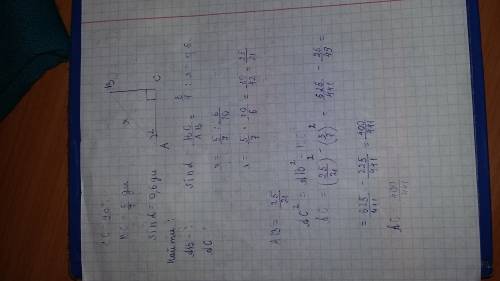 ∠C = 90°
BC = 5/7 дм
sin α = 0,6 дм
Найти:
AB - ?
AC
B
x
A
α
C
sin α BC/AB = 5/7 : x = 0,6
x = 5/7 : 6/10
x = 5/7 · 10/6 = 50/42 = 25/21
AB = 25/21
AC² = AB² - BC²
AC = (25/21)² - (5/7)² = 625/441 - 25/49 =
= 625/441 - 225/441 = 400/441
AC